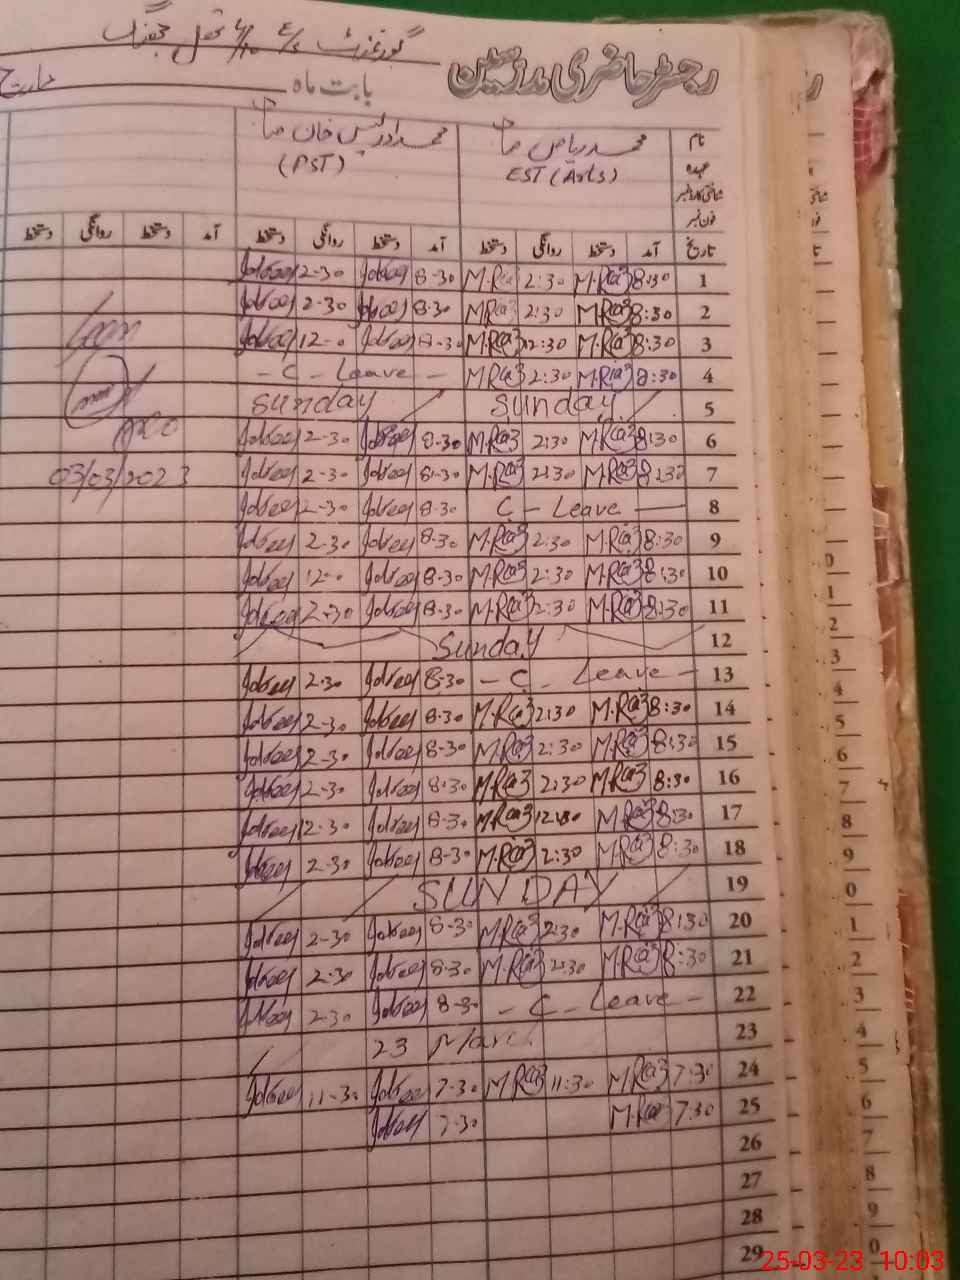 رجسٹر حاضری مدرسین
بابت ماہ
نام محمد ریاض محمد ادریس خان
عہدہ EST (Arts) (PST)
شناختی کارڈ نمبر
فون نمبر
تاریخ آمد دستخط روانگی دستخط آمد دستخط روانگی دستخط آمد دستخط روانگی دستخط
1 8:30 M.Riaz 2:30 M.Riaz 8-30 Idrees 2-30 Idrees
2 8:30 M.Riaz 2:30 M.Riaz 8-30 Idrees 2-30 Idrees
3 8:30 M.Riaz 12:30 M.Riaz 8-30 Idrees 12-0 Idrees
4 8:30 M.Riaz 2:30 M.Riaz - C - Leave -
5 Sunday Sunday
6 8:30 M.Riaz 2:30 M.Riaz 8-30 Idrees 2-30 Idrees
7 8:30 M.Riaz 2:30 M.Riaz 8-30 Idrees 2-30 Idrees
03/03/2023
8 C - Leave - 8-30 Idrees 2-30 Idrees
9 8:30 M.Riaz 2:30 M.Riaz 8-30 Idrees 2-30 Idrees
10 8:30 M.Riaz 2:30 M.Riaz 8-30 Idrees 12-0 Idrees
11 8:30 M.Riaz 2:30 M.Riaz 8-30 Idrees 2-30 Idrees
12 Sunday
13 - C - Leave - 8-30 Idrees 2-30 Idrees
14 8:30 M.Riaz 2:30 M.Riaz 8-30 Idrees 2-30 Idrees
15 8:30 M.Riaz 2:30 M.Riaz 8-30 Idrees 2-30 Idrees
16 8:30 M.Riaz 2:30 M.Riaz 8-30 Idrees 2-30 Idrees
17 8:30 M.Riaz 12:30 M.Riaz 8-30 Idrees 12-30 Idrees
18 8:30 M.Riaz 2:30 M.Riaz 8-30 Idrees 2-30 Idrees
19 SUNDAY
20 8:30 M.Riaz 2:30 M.Riaz 8-30 Idrees 2-30 Idrees
21 8:30 M.Riaz 2:30 M.Riaz 8-30 Idrees 2-30 Idrees
22 - C - Leave - 8-30 Idrees 2-30 Idrees
23 23 March
24 7:30 M.Riaz 11:30 M.Riaz 7-30 Idrees 11-30 Idrees
25 7:30 M.Riaz 7-30 Idrees
26
27
28
29
25-03-23 10:03